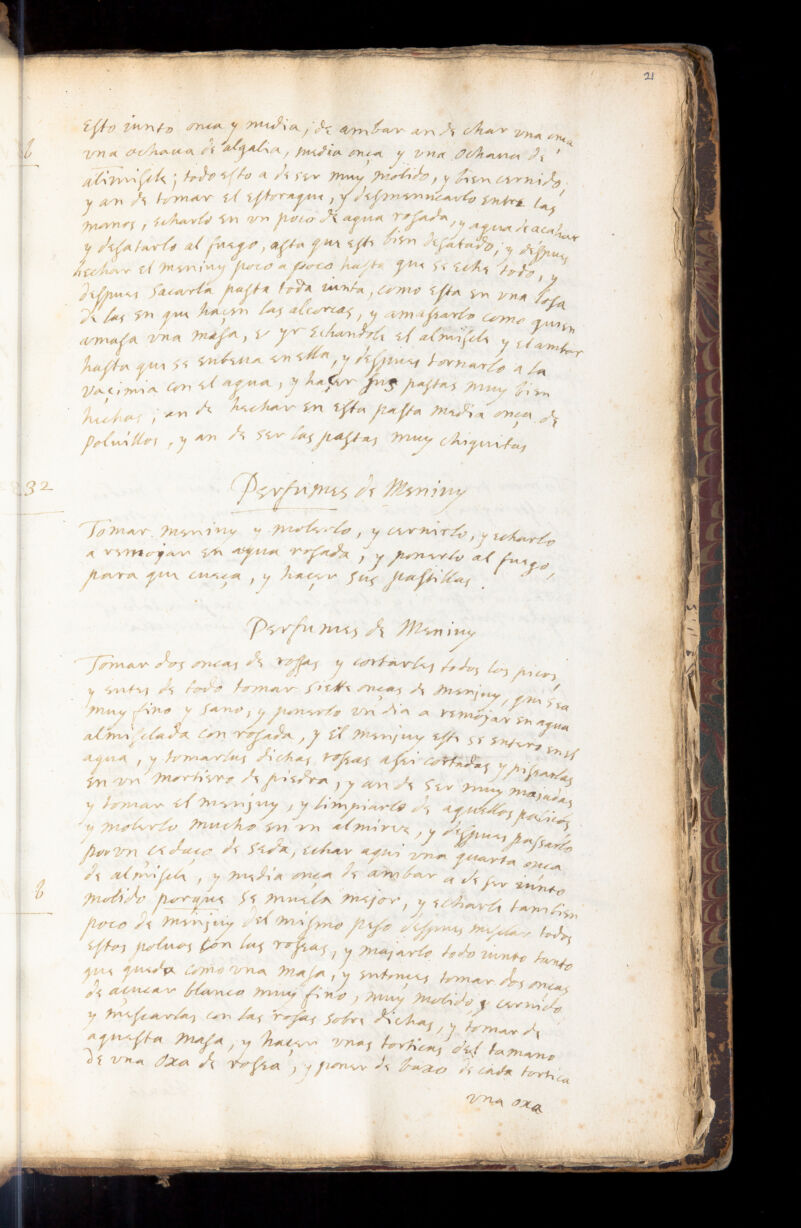 21
Esto iunto onça y media; de ambar an de char vna onça
vna ochaua de algalia, media onça y vna ochaua de
almiscle; todo esto a de ser muy molido, y bien cernido,
y an de tomar el estoraque, y desmenuçarlo entre las
manos, echarlo en vn poco de agua rosada, y agua de acahar
y desatarlo al fuego, asta que este bien desatado; y despues
hechar el meniuy poco a poco hasta que se eche todo, y
despues sacarla pasta toda iunta, como esta en vna losa
de las en que haçen las alcorças, y amassarlo como quien
amasa vna masa, e yr echandole el almiscle y el ambar
hasta que se enbeua en ella, y despues tornarlo a la
vaçimia con el agua, y haçer sus pastas muy bien
hechas; an de hechar en esta pasta media onça de
Poluillos, y an de ser las pastas muy chiquitas
32
Perfumes de Meniuy
Tomar meniuy y molerlo, y cernirlo, y echarlo
a remojar en agua rosada, y ponerlo al fuego,
para que cueça, y haçer sus pastillas.
Perfumes de Meniuy
Tomar dos onças de rosas y cortarles todos los picos,
y antes de todo tomar siette onças de menjuy, que sea
muy fino y sano, y ponerlo vn dia a remojar en agua
almisclada con rosada, y el menjuy este se entero en el
agua, y tomar las dichas rosas assi cortadas y pisarlas
en vn mortiero de piedra, y an de ser muy majadas
y tomar el menjuy, y limpiarlo de aquellos paxicos
y molerlo mucho en vn almirez, y despues passarlo
por vn cedaço de seda, echar aqui vna quarta onça
de almiscle, y media onça de ambar a de ser iunto
molido porque se muela mejor, y echarle tambien
poco de menjuy del mismo peso despues mesclar todos
estos poluos con las rosas, y majarlo todo iunto tanto
que quede como vna masa, y entonçes tomar dos onças
de açucar blanco muy fino, muy molido y cernido,
y mesclarlas con las rosas sobre dichas, y tomar de
aquesta masa, y haçer vnas torticas del tamano
de vna oxa de rosa, y poner de baxo de cada tortica
vna oxa